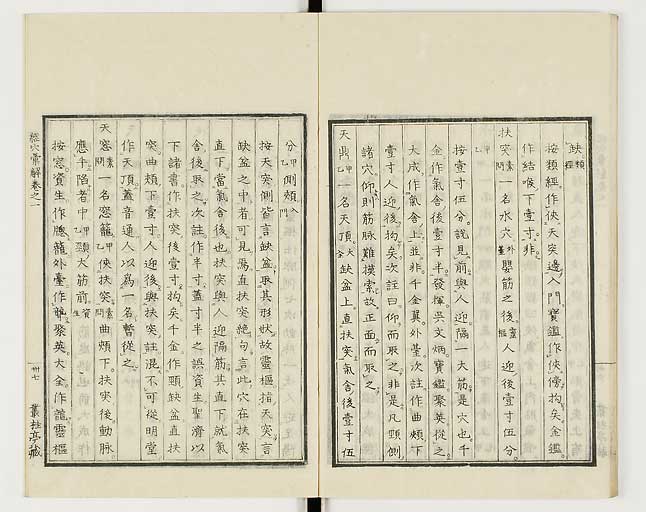 缺 類經
按類經作俠天突邊入門寶鑑作俠傍拘矣金鑑
作結喉下壹寸非
扶突 素問 一名水穴 外臺 嬰筋之後 靈樞 人迎後壹寸伍分
甲乙
按壹寸伍分說見前與人迎隔一大筋是穴也千
金作氣舍後壹寸半發揮吳文炳寶鑑聚英從之
大成作氣舍上並非千金翼外臺次註作曲頰下
壹寸人迎後拘矣次註曰仰而取之非是凡頸側
諸穴仰則筋脉難摸索故正面而取之
天鼎 甲乙 一名天頂 缺盆上直扶突氣舍後壹寸伍
分 甲乙 側頰 入門
按天突側皆言缺盆取其形狀故靈樞指天突言
缺盆之中者可見焉直扶突絶句言此穴在扶突
直下當氣舍後也扶突與人迎隔筋其直下就氣
舍後取之次註作半寸蓋寸半之誤資生聖濟以
下諸書作扶突後壹寸拘矣千金作頸缺盆直扶
突曲頰下壹寸人迎後與扶突註混不可從明堂
作天頂蓋音通人以爲一名暫從之
天窓 素問 一名窓籠 甲乙 俠扶突 素問 曲頰下扶突後動脉
應手陷者中 甲乙 頸大筋前 資生
按窓資生作牕籠外臺作聚英大全作龍靈樞
經穴彙解卷之一
卅七
叢桂亭藏